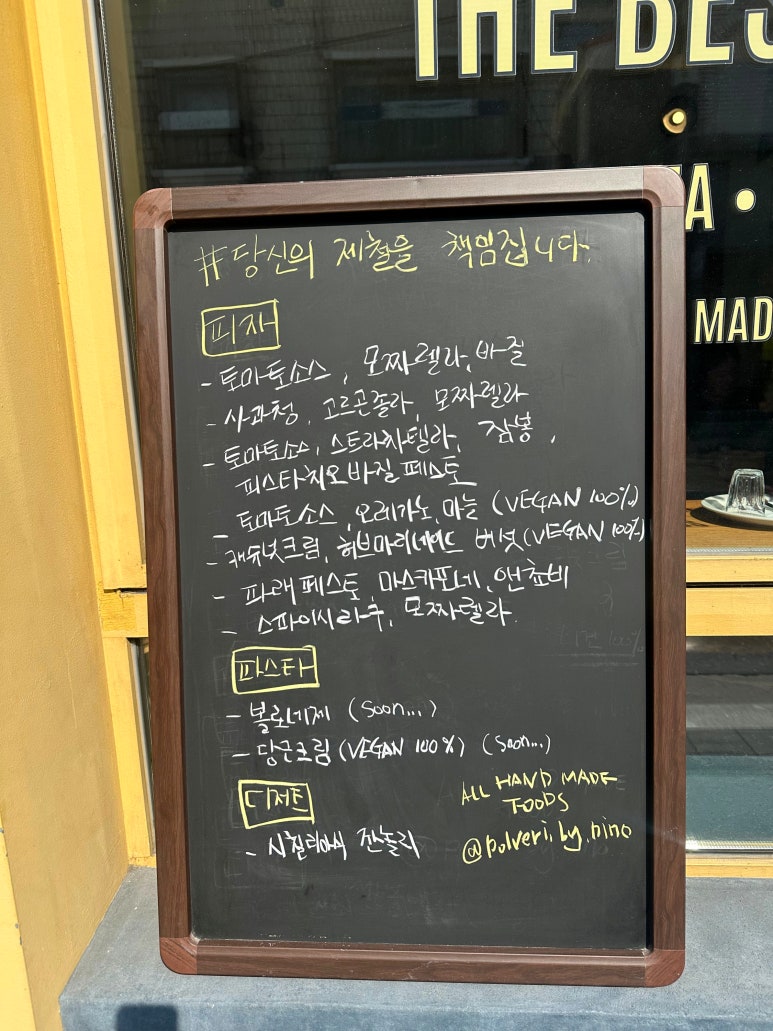 THE BES
TA •
MAD
#당신의 제철을 책임집니다.
피자
- 토마토소스, 모짜렐라, 바질
- 사과청, 고르곤졸라, 모짜렐라
- 토마토소스, 스트라차텔라, 잠봉,
피스타치오바질페스토
- 토마토소스, 오레가노, 마늘 (VEGAN 100%)
- 캐슈넛크림, 허브마리네이드 버섯 (VEGAN 100%)
- 파래페스토, 마스카포네, 앤쵸비
- 스파이시라구, 모짜렐라.
파스타
- 볼로네제 (Soon...)
- 당근크림 (VEGAN 100%) (Soon...)
디저트
- 시칠리아식 깐놀리
ALL HAND MADE
FOODS
@polveri.by.nino